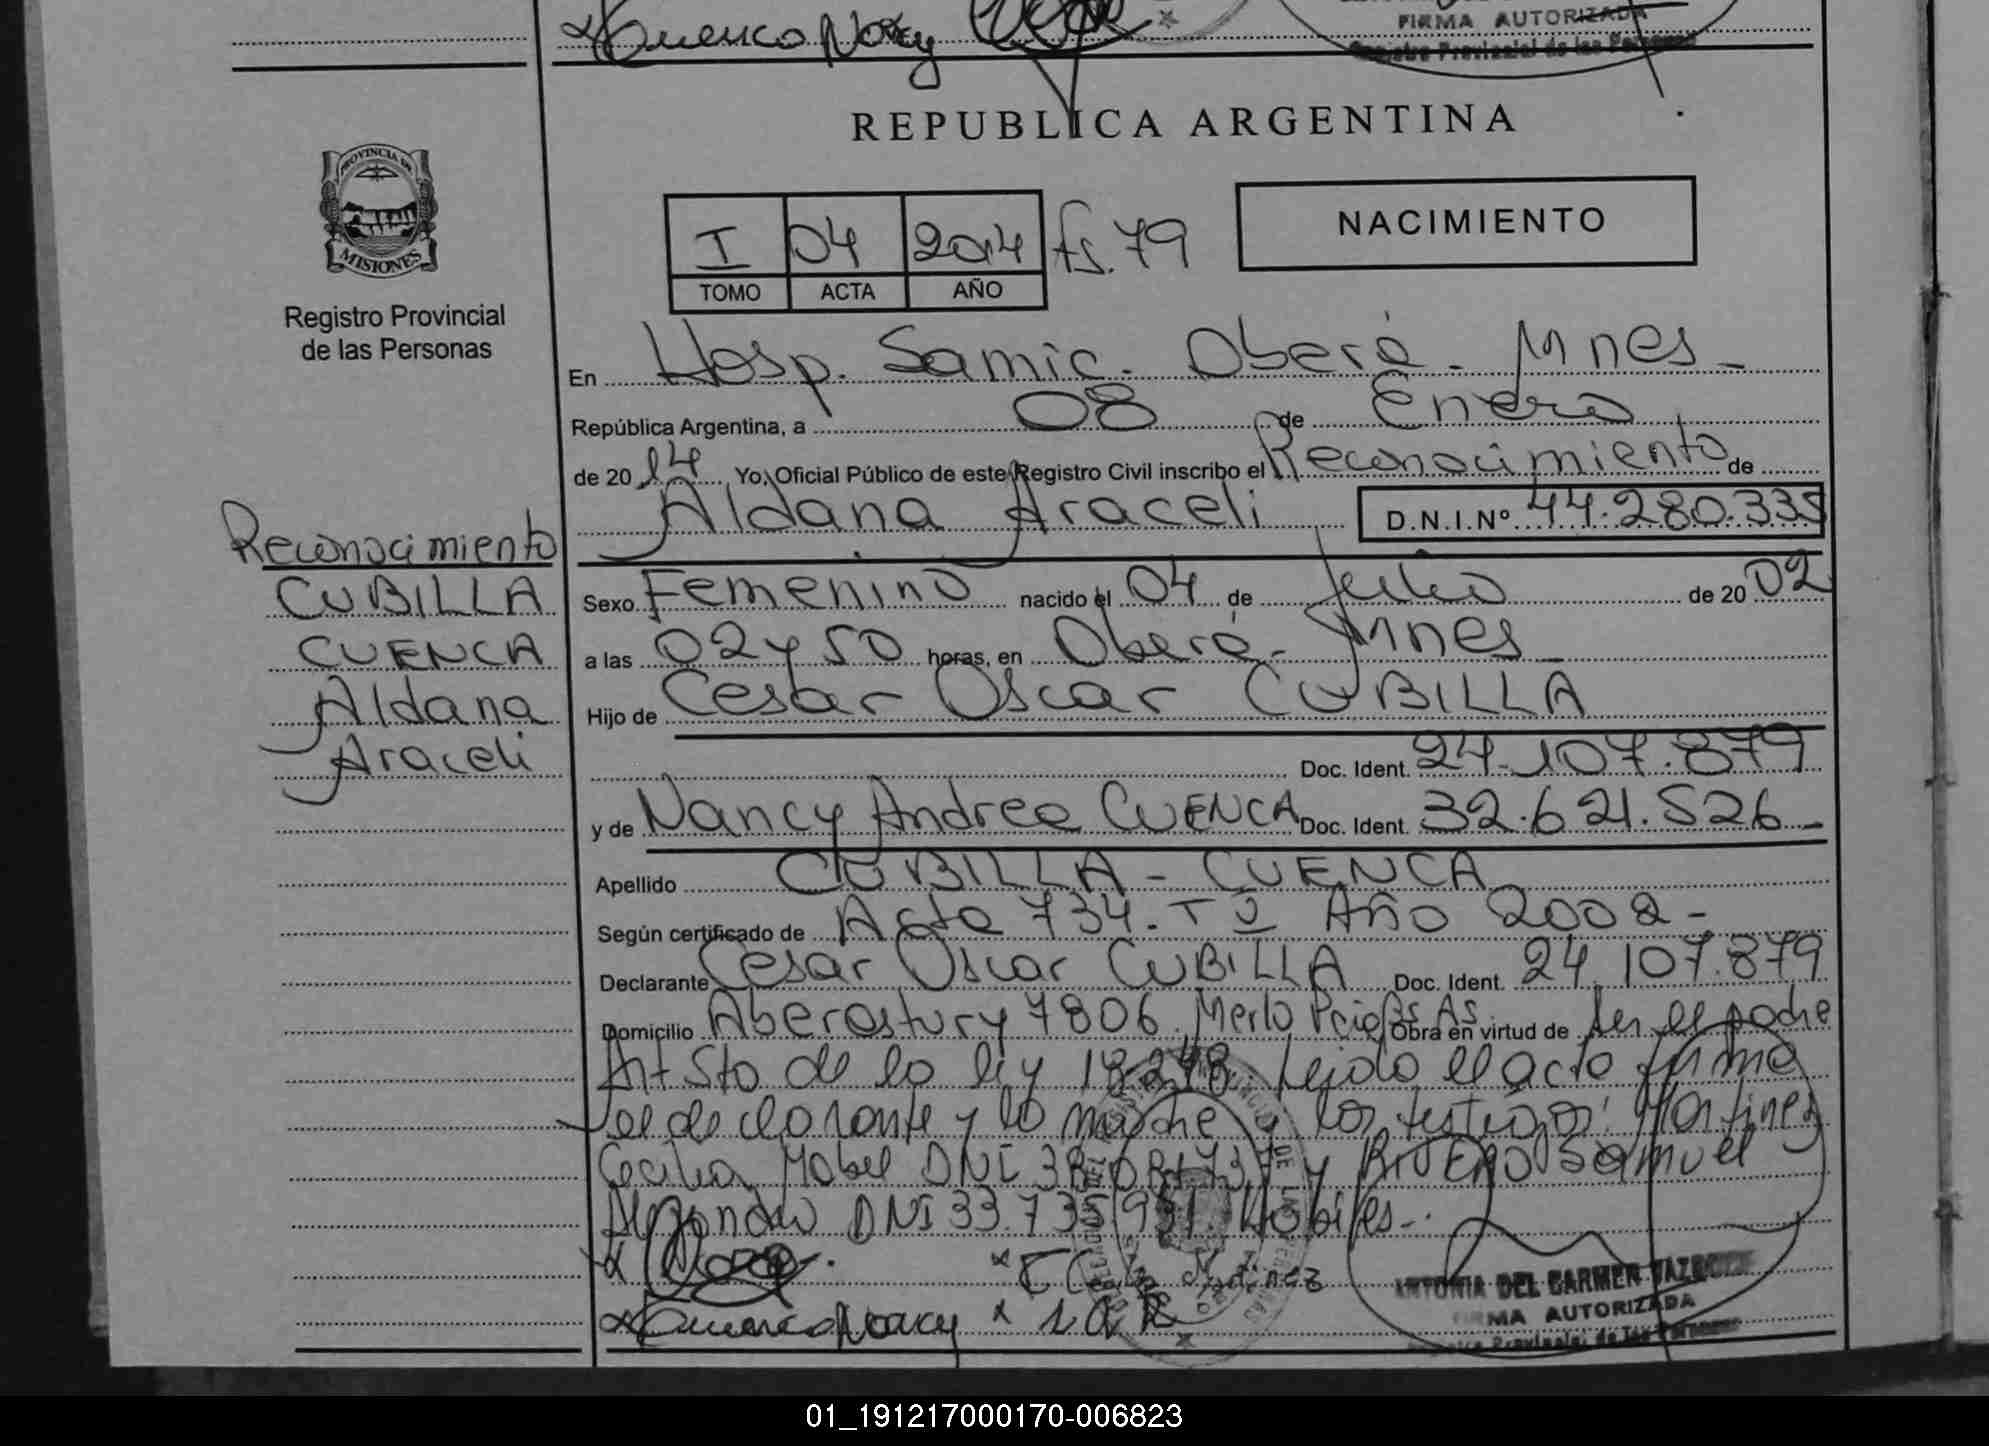 Cuenca Nancy
FIRMA AUTORIZADA
Registro Provincial de las Personas
REPUBLICA ARGENTINA
PROVINCIA DE
MISIONES
Registro Provincial
de las Personas
I 04 2014 fs. 79
TOMO ACTA AÑO
NACIMIENTO
En Hosp. Samic. Oberá - Mnes -
República Argentina, a 08 de Enero
de 20 14 Yo, Oficial Público de este Registro Civil inscribo el Reconocimiento de
Aldana Araceli D.N.I.Nº 44.280.335
Reconocimiento
CUBILLA
CUENCA
Aldana
Araceli
Sexo Femenino nacido el 04 de Julio de 20 02
a las 02 y 50 horas, en Oberá - Mnes -
Hijo de Cesar Oscar CUBILLA
Doc. Ident. 24.107.879
y de Nancy Andrea CUENCA Doc. Ident. 32.621.526 -
Apellido CUBILLA - CUENCA
Según certificado de Acta 734. Año 2002 -
Declarante Cesar Oscar CUBILLA Doc. Ident. 24.107.879
Domicilio Aberastury 7806. Merlo Pcia Bs As. Obra en virtud de ser el padre
Art 5to de la ley 18.248 Leida el acta firma
el declarante y la madre y los testigos: Martinez
Cecilia Mabel DNI y Samuel
Alejandro DNI 33.735.951. Habiles -.
Cuenca Nancy
ANTONIA DEL CARMEN
FIRMA AUTORIZADA
Registro Provincial de las Personas
01_191217000170-006823